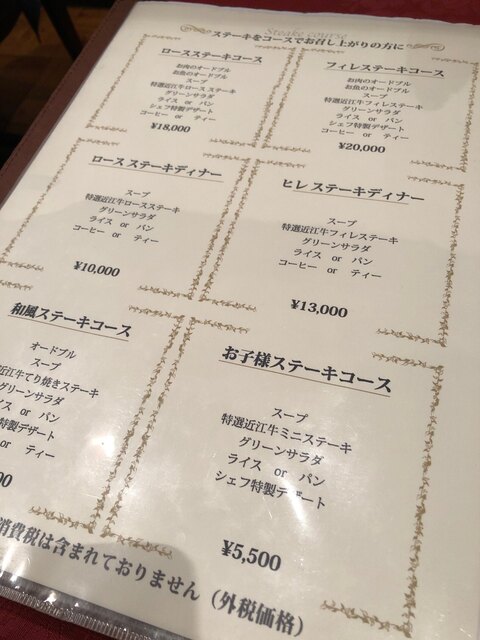 Steake course
ステーキをコースでお召し上がりの方に
ロースステーキコース
お肉のオードブル
お魚のオードブル
スープ
特選近江牛ロースステーキ
グリーンサラダ
ライス or パン
シェフ特製デザート
コーヒー or ティー
¥18,000
フィレステーキコース
お肉のオードブル
お魚のオードブル
スープ
特選近江牛フィレステーキ
グリーンサラダ
ライス or パン
シェフ特製デザート
コーヒー or ティー
¥20,000
ロースステーキディナー
スープ
特選近江牛ロースステーキ
グリーンサラダ
ライス or パン
コーヒー or ティー
¥10,000
ヒレステーキディナー
スープ
特選近江牛フィレステーキ
グリーンサラダ
ライス or パン
コーヒー or ティー
¥13,000
和風ステーキコース
オードブル
スープ
近江牛てり焼きステーキ
グリーンサラダ
イス or パン
特製デザート
or ティー
00
お子様ステーキコース
スープ
特選近江牛ミニステーキ
グリーンサラダ
ライス or パン
シェフ特製デザート
¥5,500
消費税は含まれておりません（外税価格）